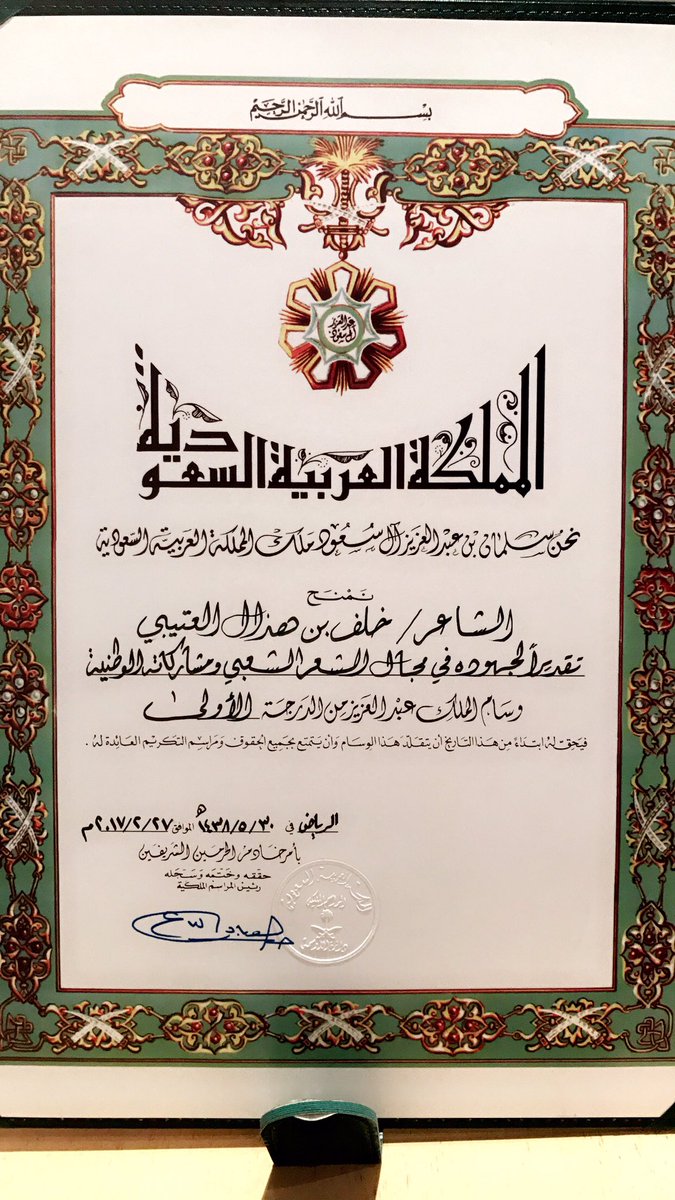 بسم الله الرحمن الرحيم
عبد العزيز
آل سعود
المملكة العربية السعودية
نحن سلمان بن عبد العزيز آل سعود ملك المملكة العربية السعودية
نمنح
الشاعر / خلف بن هذال العتيبي
تقديراً لجهوده في مجال الشعر الشعبي ومشاركاته الوطنية
وسام الملك عبد العزيز من الدرجة الأولى
فيحق له ابتداءً من هذا التاريخ أن يتقلد هذا الوسام وأن يتمتع بجميع الحقوق ومراسم التكريم العائدة له .
الرياض في ٣٠/٥/١٤٣٨هـ الموافق ٢٧/٢/٢٠١٧م
بأمر خادم الحرمين الشريفين
حققه وختمه وسجله
رئيس المراسم الملكية